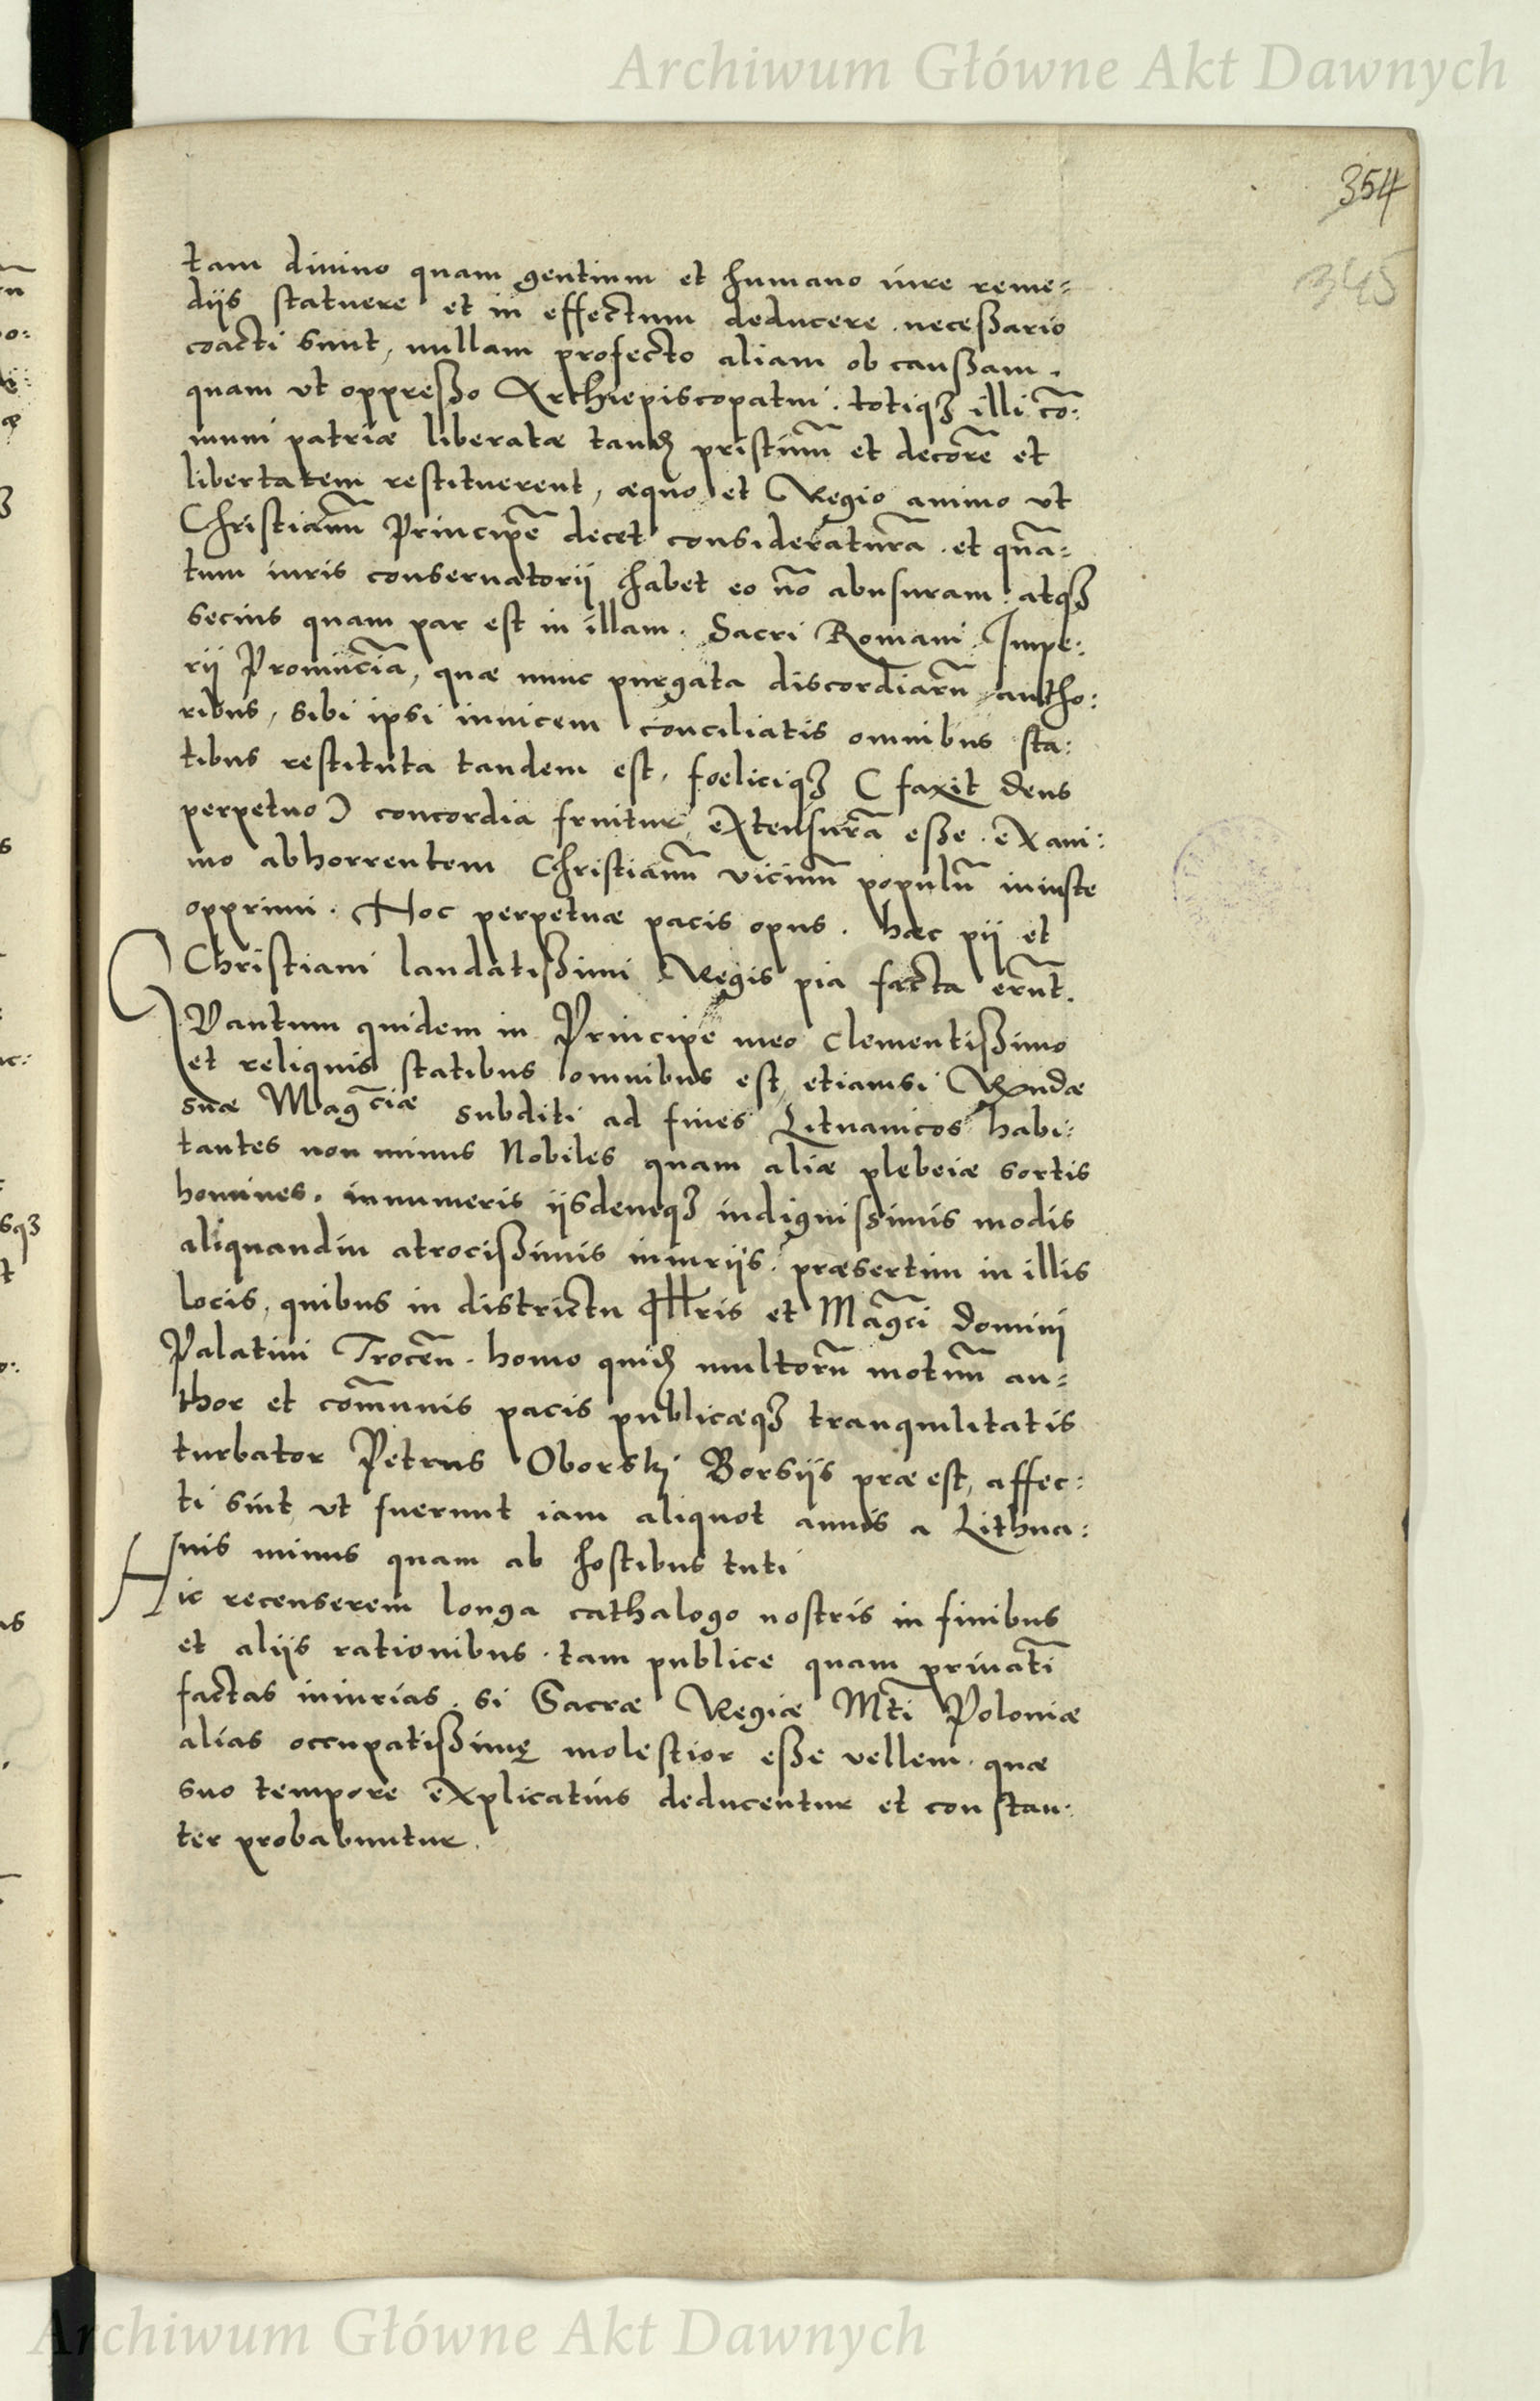 Archiwum Główne Akt Dawnych
354
345
tam diuino quam gentium et humano iure reme=
diis statuere et in effectum deducere necessario
coacti sunt, nullam profecto aliam ob caussam.
quam vt oppresso Archiepiscopatui. totiqꝫ illi cõ:
muni patriæ liberatæ tandẽ pristinũ et decorẽ et
libertatem restituerent, æquo et Regio animo vt
Christianũ Principẽ decet consideraturã. et quã=
tum iuris conseruatorij habet eo nõ abusuram: atqꝫ
secius quam par est in illam. Sacri Romani Impe:
rij Prouinciã, quæ nunc purgata discordiarũ autho:
ribus, sibi ipsi inuicem conciliatis omnibus sta:
tibus restituta tandem est, foeliciqꝫ (faxit deus
perpetuo) concordia fruitur, extensurã esse. ex ani:
mo abhorrentem Christianũ vicinũ populũ iniuste
opprimi. Hoc perpetuæ pacis opus. hæc pij et
Christiani laudatissimi Regis pia facta erũt.
QVantum quidem in Principe meo clementissimo
et reliquis statibus omnibus est, etiamsi Rndæ
suæ Magciæ subditi ad fines Lituanicos habi:
tantes non minus Nobiles quam aliæ plebeiæ sortis
homines. innumeris iisdemqꝫ indignissimis modis
aliquandiu atrocissimis iniurijs. præsertim in illis
locis, quibus in districtu Illris et Magci domini
Palatini Trocen̄. homo quidẽ multorũ motuũ au=
thor et cõmunis pacis publicæqꝫ tranquilitatis
turbator Petrus Oborskj Borsijs præest, affec:
ti sint, vt fuerunt iam aliquot annis a Lithua:
nis minus quam ab hostibus tuti
Hic recenserem longa cathalogo nostris in finibus
et alijs rationibus. tam publice quam priuatī
factas iniurias. si Sacræ Regiæ Mti Poloniæ
alias occupatissimę molestior esse vellem. quæ
suo tempore explicatius deducentur et constan:
ter probabuntur.
Archiwum Główne Akt Dawnych